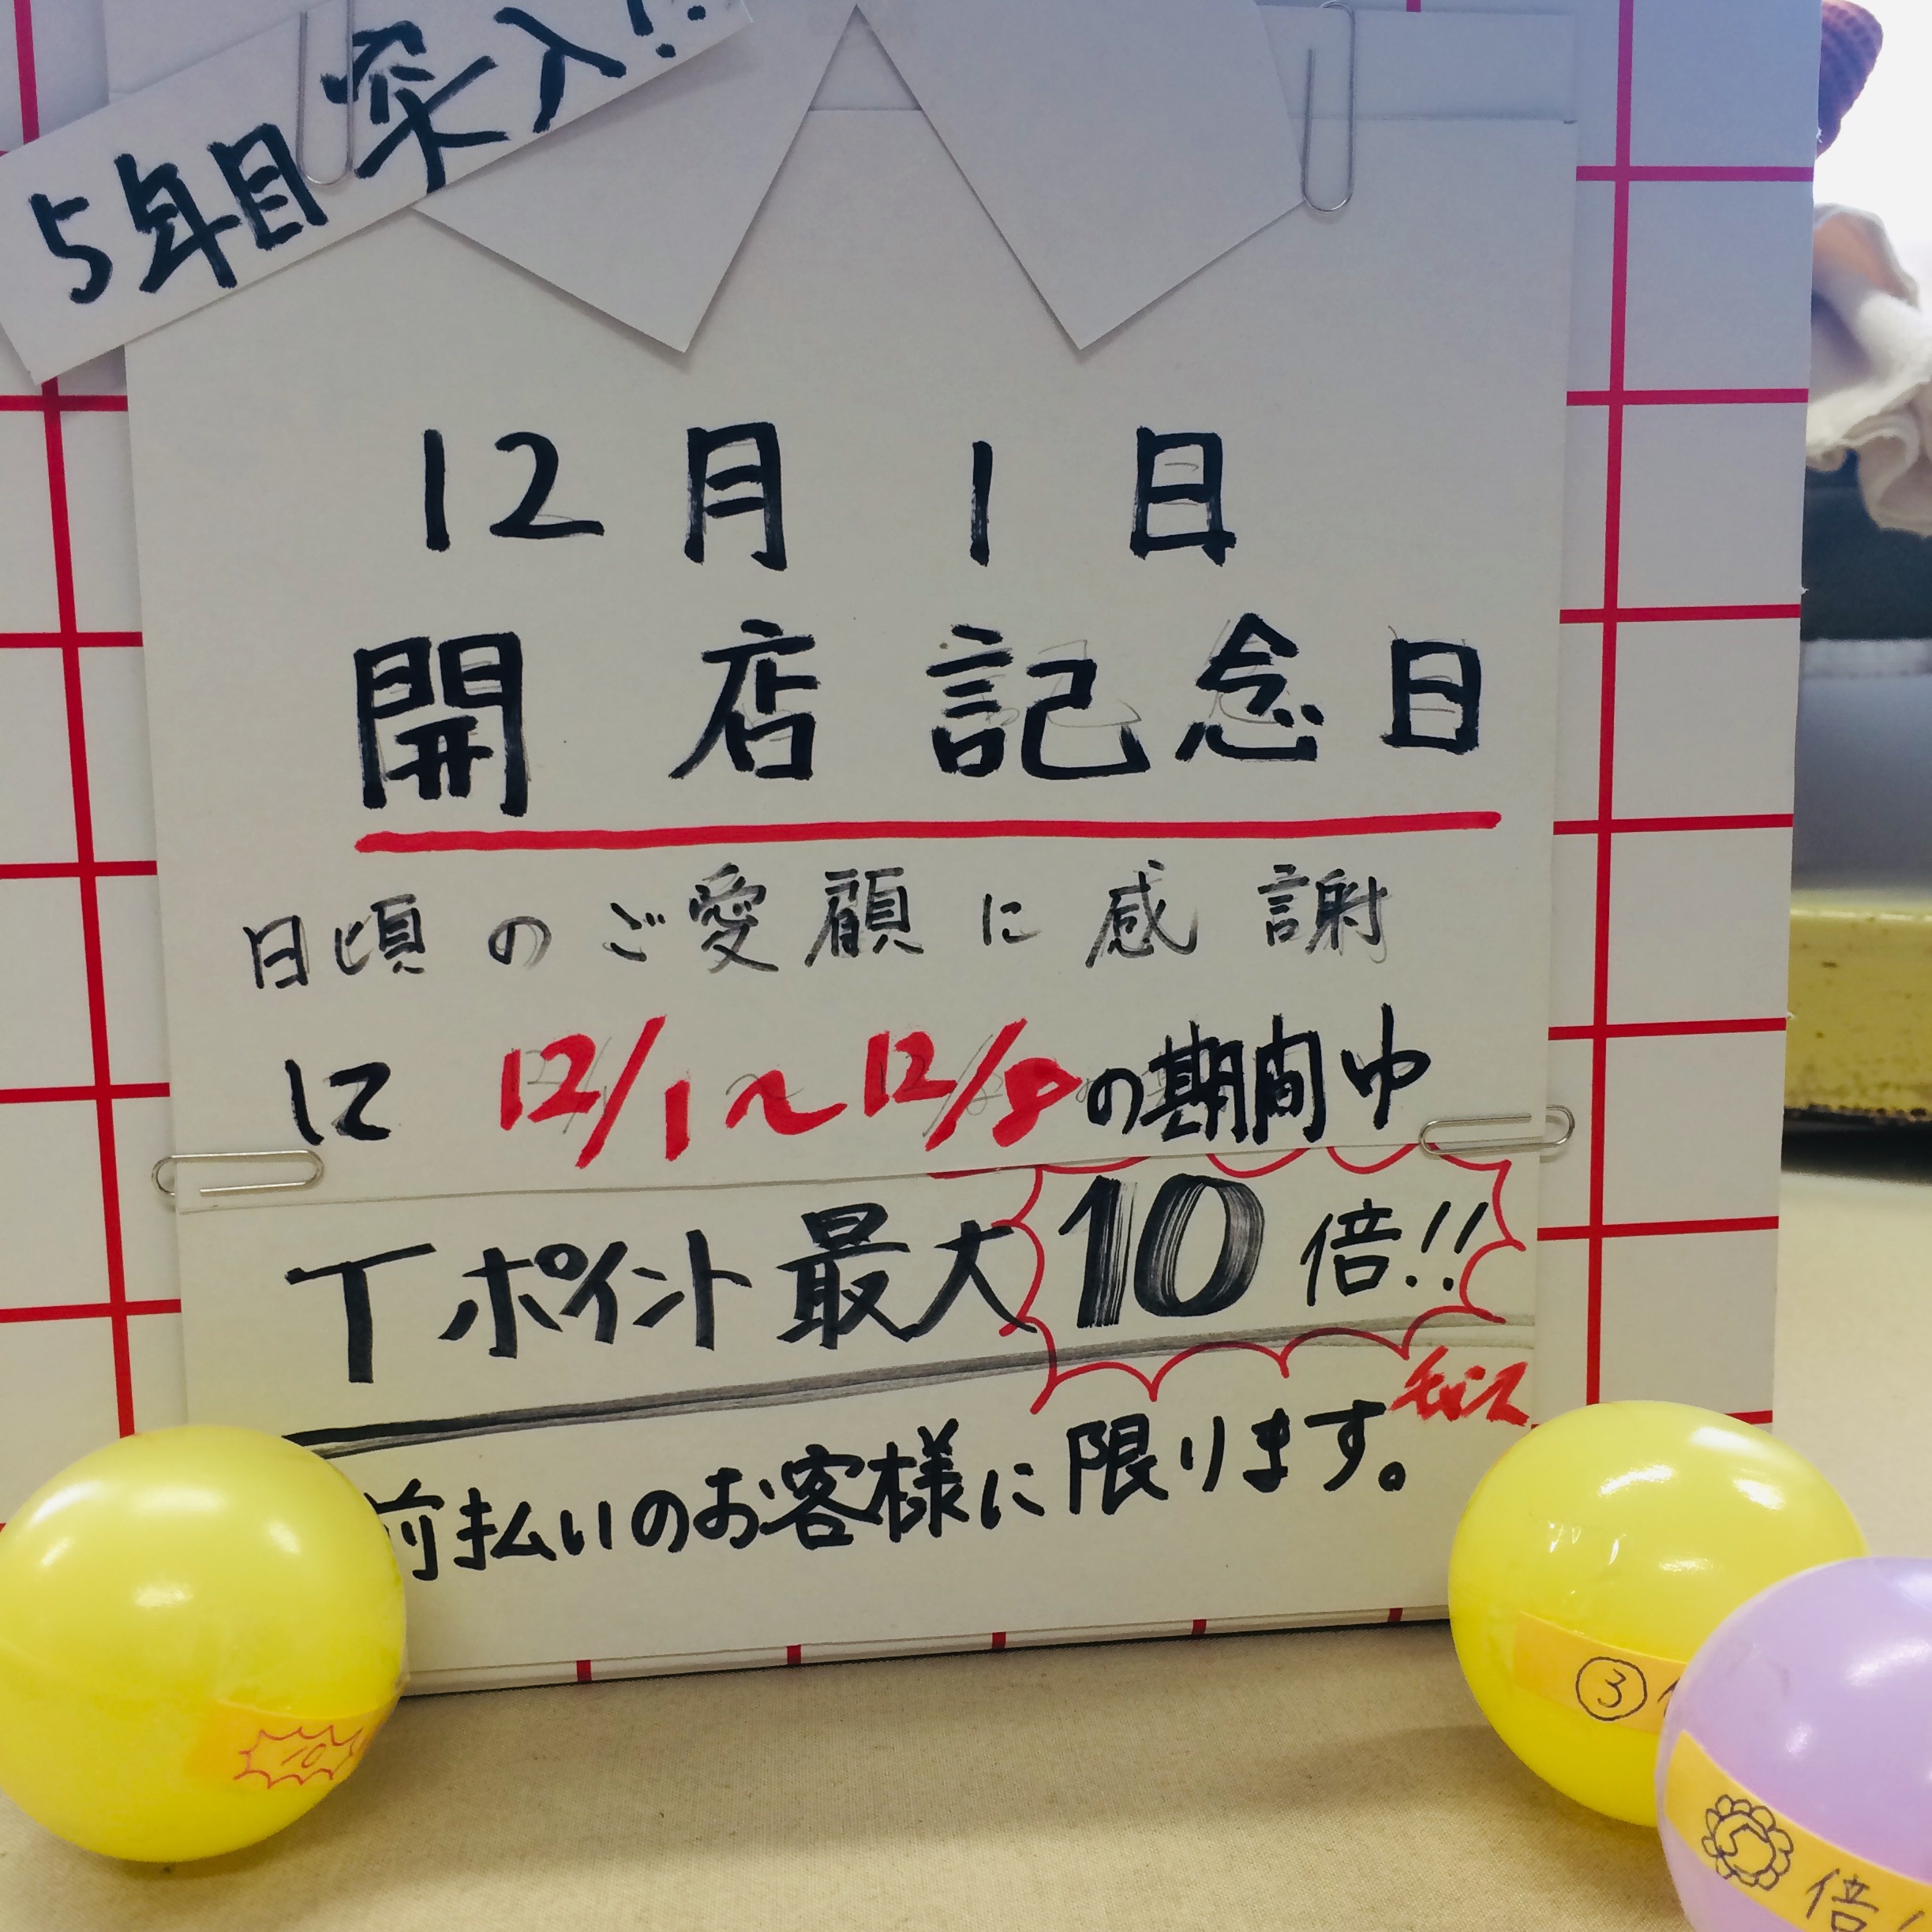 5年目突入!!
12月1日
開店記念日
日頃のご愛顧に感謝
に 12/1〜12/8の期間中
Tポイント最大10倍!!
チャンス
前払いのお客様に限ります。
10
③
倍!